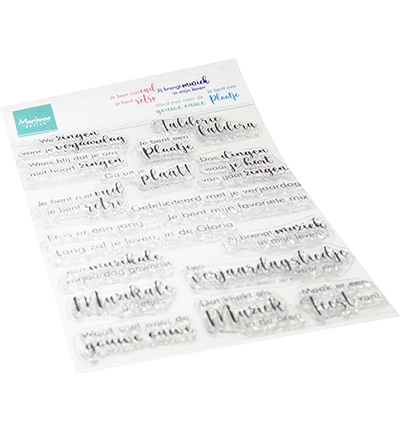 Marianne
DESIGN
Je bent niet oud
je bent retro
Jij brengt muziek
in mijn leven
Word snel weer de
gouwe ouwe
Je bent een
Plaatje
We zingen
voor je verjaardag
Wees blij dat je ons
niet hoort zingen
Talderie
taldera
Je bent een
Plaatje
Ga uit je
plaat!
Doe dingen
waar je hart
van gaat zingen
Je bent niet oud
je bent retro
Gefeliciteerd met je verjaardag
Je bent mijn favoriete mix
Er is er één jarig
Lang zal je leven, in de Gloria
Jij brengt muziek
in mijn leven
Een muzikale
verjaardag gewenst
Een
Verjaardagsliedje
voor jou!
Muzikale
groetjes
Dat klinkt als
Muziek
in de oren
Maak er een
feest van!
Word snel weer de
gouwe ouwe